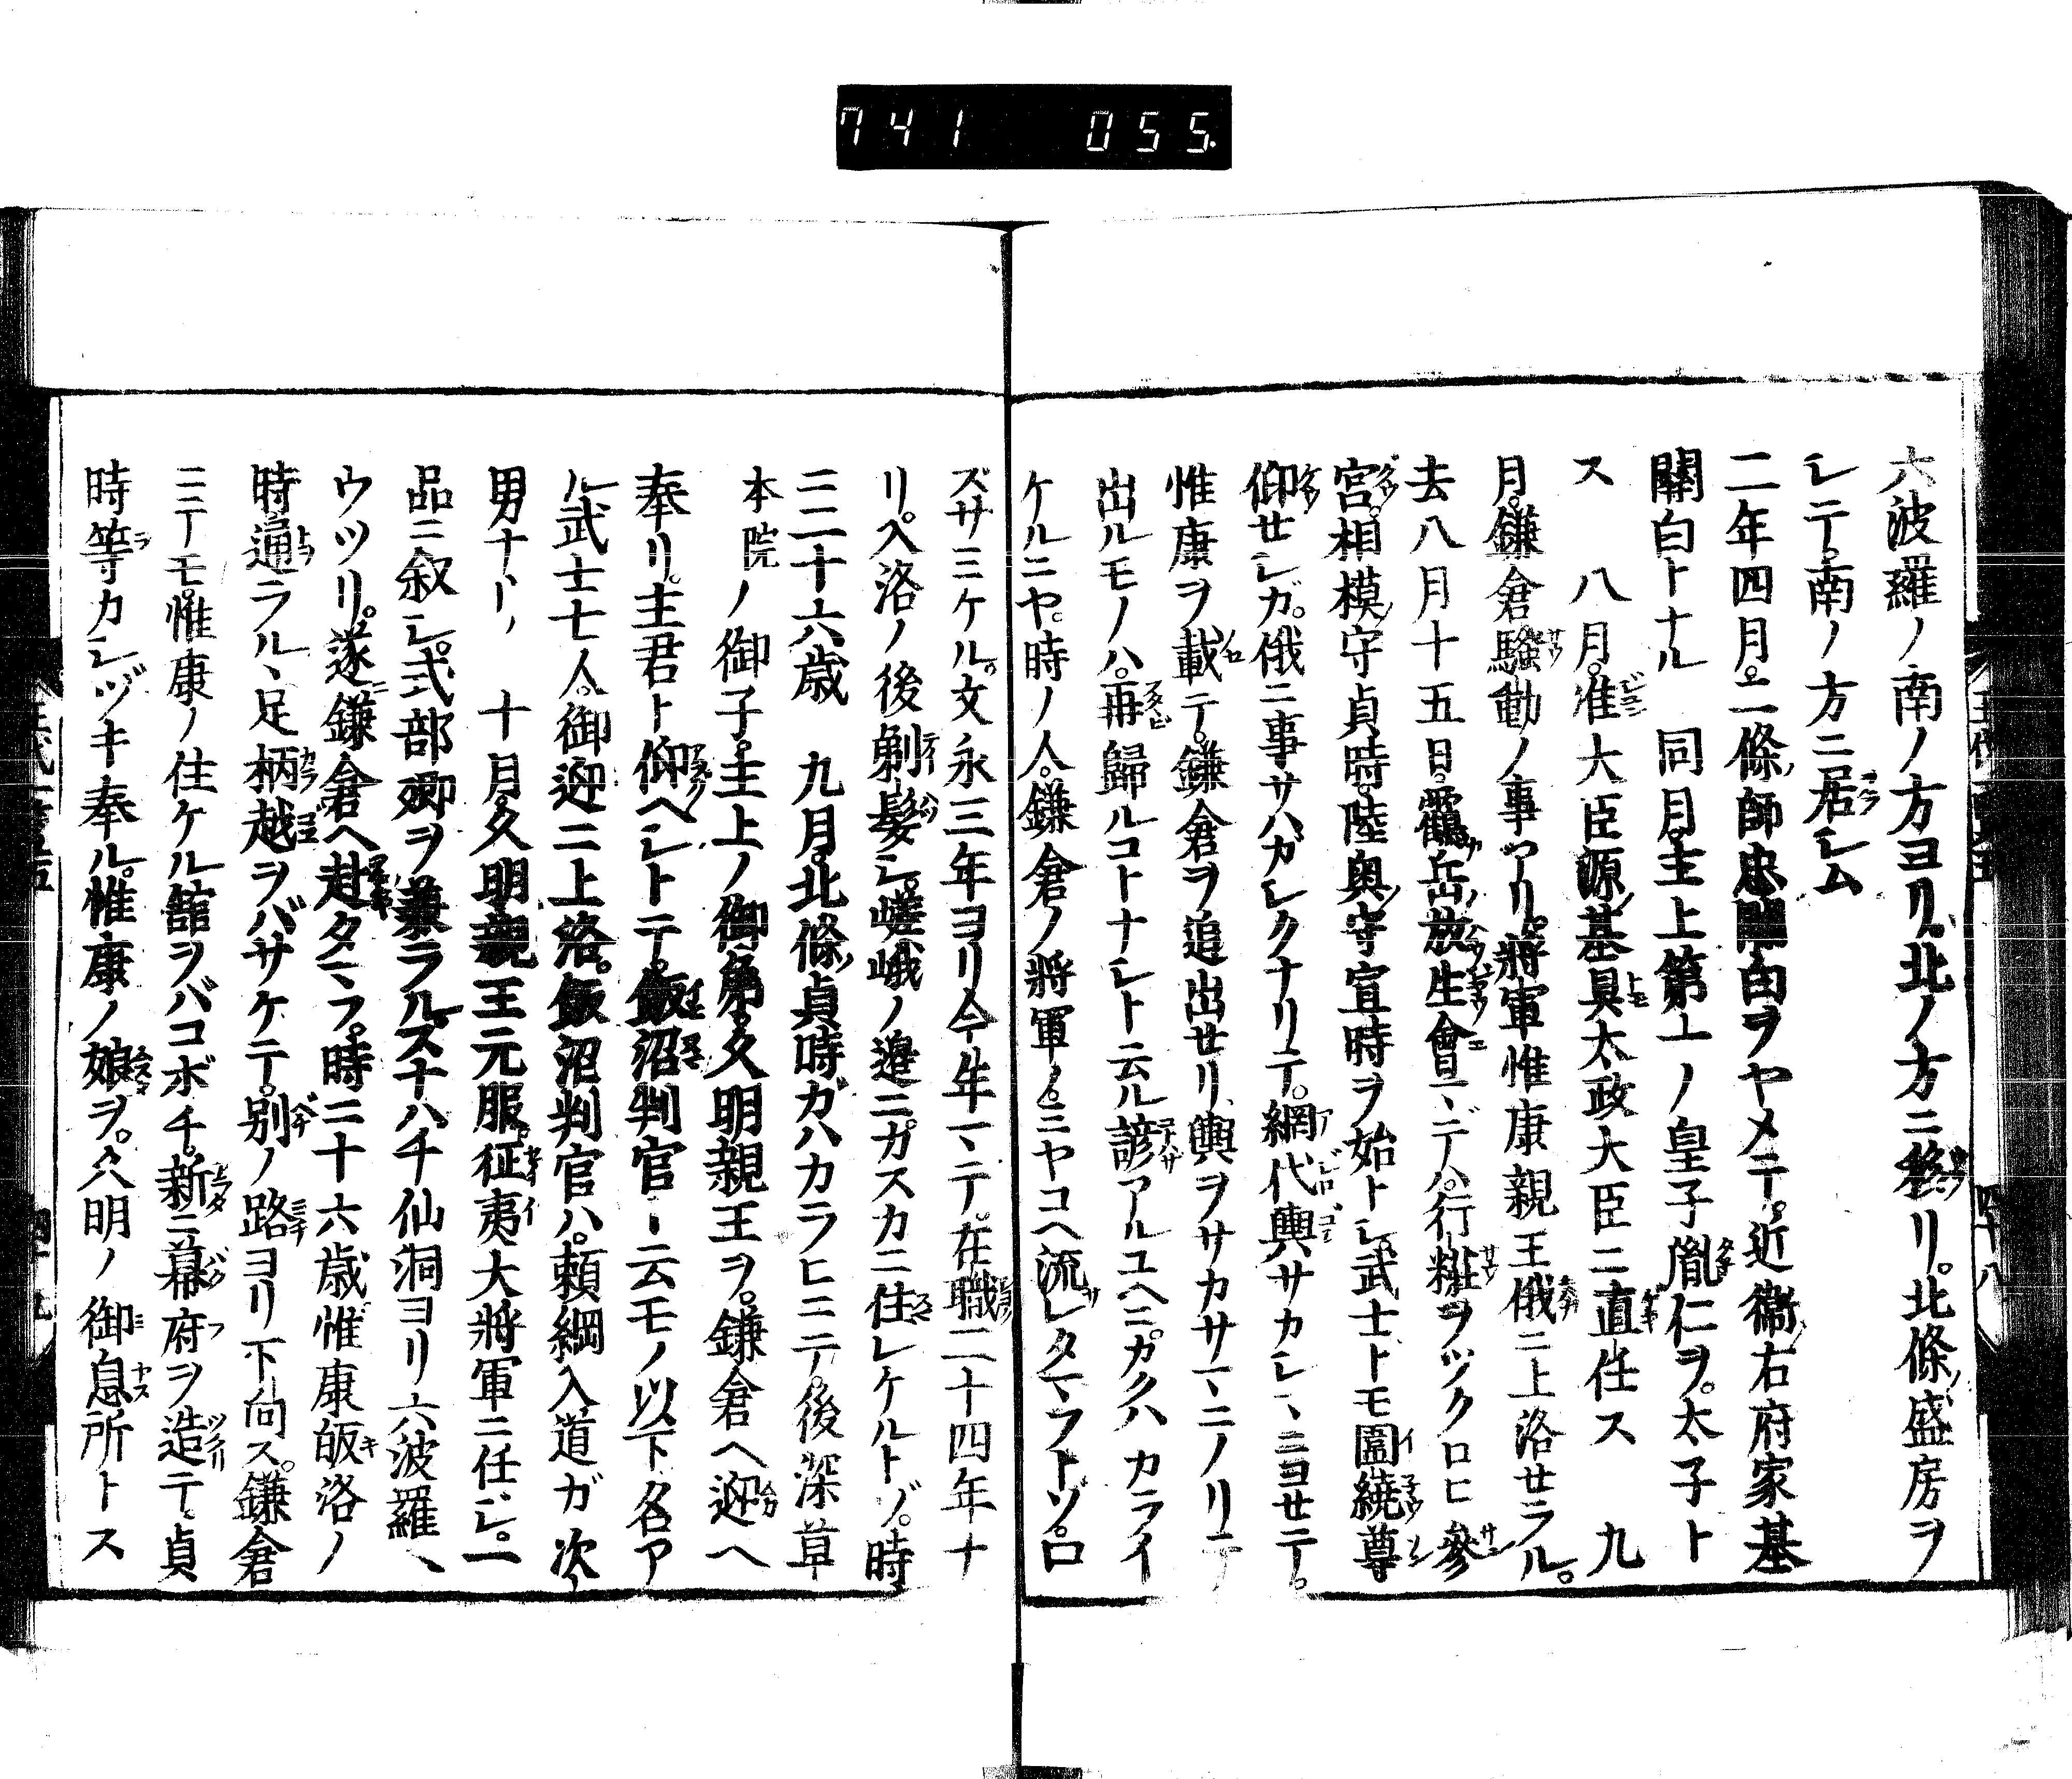 741 055
六波羅ノ南ノ方ヨリ北ノ方ニ移リ。北條盛房ヲ
シテ。南ノ方ニ居シム
二年四月。二條師忠關白ヲヤメテ。近衞右府家基
關白トナル 同月主上第一ノ皇子胤仁ヲ。太子ト
ス 八月。准大臣源基具太政大臣ニ直任ス 九
月。鎌倉騷動ノ事アリ。將軍惟康親王俄ニ上洛セラル。
去八月十五日。鶴岳放生會マデハ。行糚ヲツクロヒ參
宮。相模守貞時。陸奥守宣時ヲ始トシ。武士トモ圍繞尊
仰セシガ。俄ニ事サハガシクナリテ。網代輿サカシマニヨセテ。
惟康ヲ載テ。鎌倉ヲ追出セリ輿ヲサカサマニノリテ
出ルモノハ。再歸ルコトナシト云ル諺アルユヘニ。カクハカライ
ケルニヤ。時ノ人。鎌倉ノ將軍ノ。ミヤコヘ流レタマフトゾ。口
ズサミケル。文永三年ヨリ今年マテ。在職二十四年ナ
リ。入洛ノ後剃髮シ。嵯峨ノ邊ニカスカニ住レケルトゾ。時
ニ二十六歳 九月。北條貞時ガハカラヒニテ。後深草
本院ノ御子。主上ノ御弟。久明親王ヲ。鎌倉ヘ迎ヘ
奉リ。主君ト仰ヘシトテ。飯沼判官ト云モノ以下名ア
ル武士七人。御迎ニ上洛。飯沼判官ハ。賴綱入道ガ次
男ナリ 十月。久明親王元服。征夷大將軍ニ任ジ。一
品ニ叙シ。式部卿ヲ兼ラル。スナハチ仙洞ヨリ六波羅ヘ
ウツリ。遂ニ鎌倉ヘ赴タマフ。時ニ十六歳惟康皈洛ノ
時通ラルヽ足柄越ヲバサケテ。別ノ路ヨリ下向ス。鎌倉
ニテモ。惟康ノ住ケル舘ヲバコボチ。新ニ幕府ヲ造テ。貞
時等カシヅキ奉ル。惟康ノ娘ヲ。久明ノ御息所トス